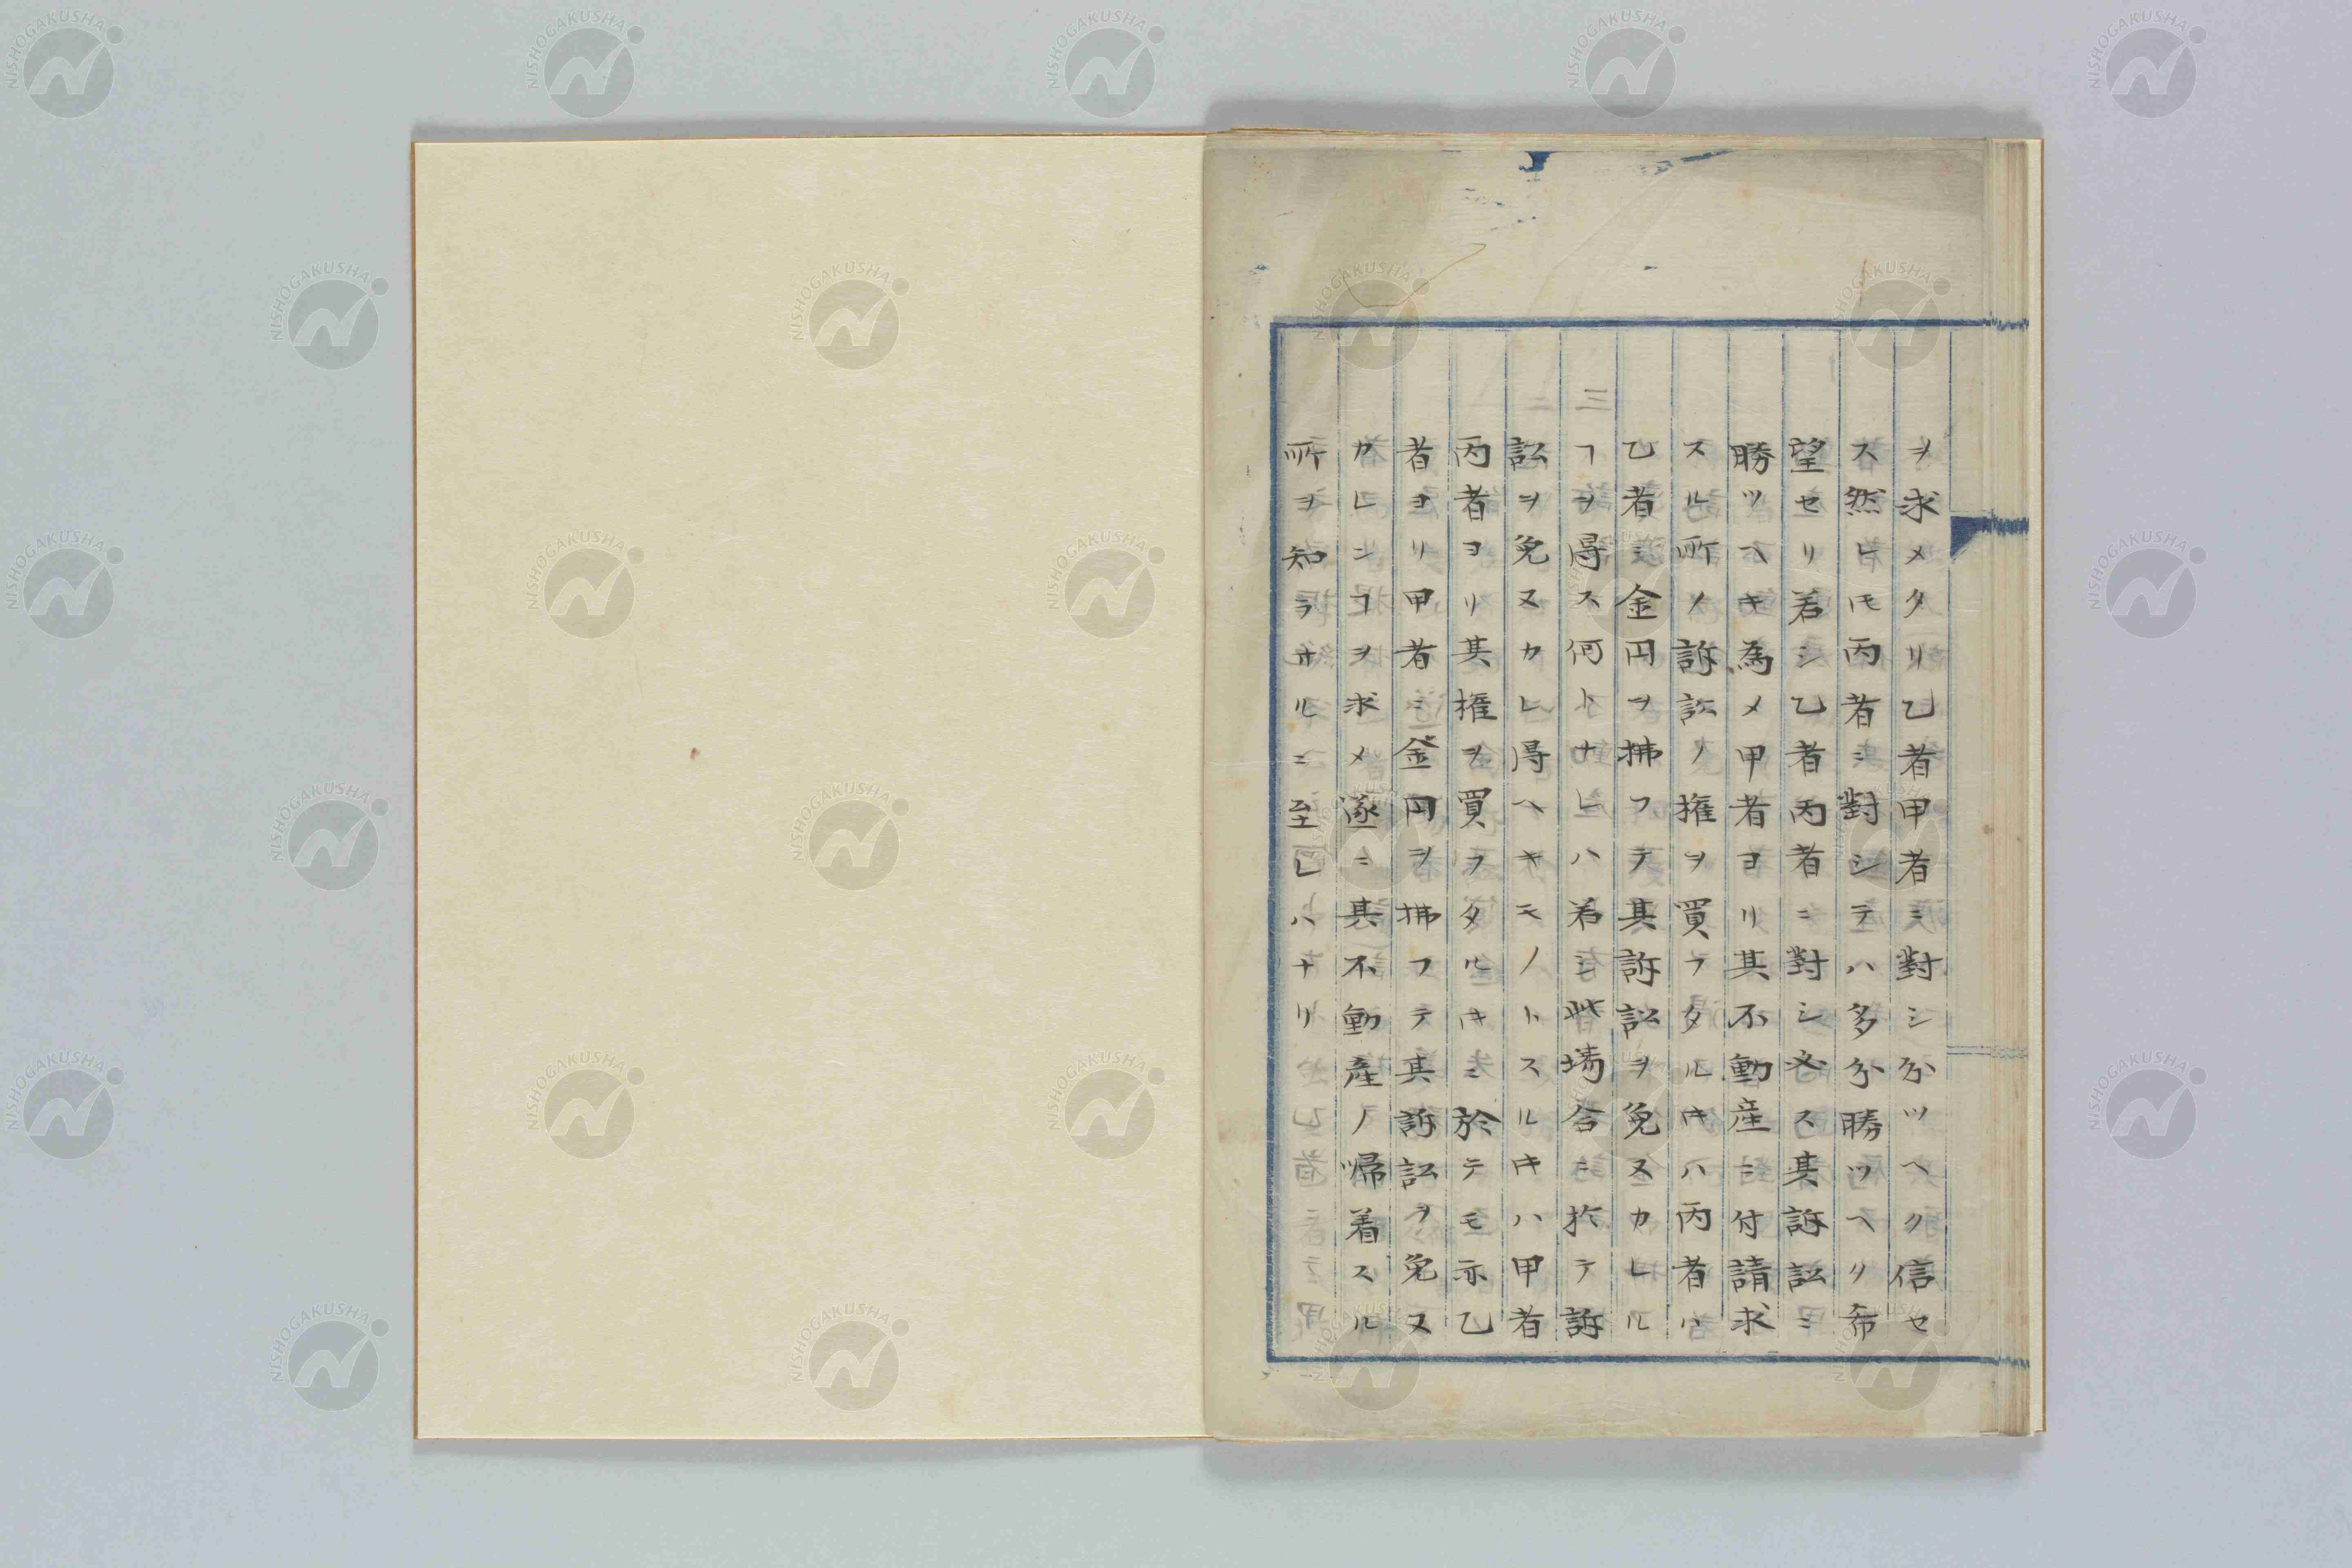 ヲ求メタリ乙者甲者ニ對シ分ツヘク信セ
ス然ヒ𪜈丙者ニ對シテハ多分勝ツヘリ希
望セリ若シ乙者丙者ニ對シ必ス其訴訟ニ
勝ツヘキ為メ甲者ヨリ其不動産ニ付請求
スル所ノ訴訟ノ権ヲ買フタルキハ丙者ハ
乙者ニ金円ヲ拂フテ其訴訟ヲ免ヌカレル
ヿヲ得ス何トナヒハ若シ此塲合ニ於テ訴
訟ヲ免ヌカレ得ヘキモノトスルキハ甲者
丙者ヨリ其権ヲ買ヲタルキニ於テモ示乙
者ヨリ甲者ニ金円ヲ拂フテ其訴訟ヲ免ヌ
カレンヿヲ求メ遂ニ其不動産ノ帰着スル
所ヲ知ラサルニ至レハナリ